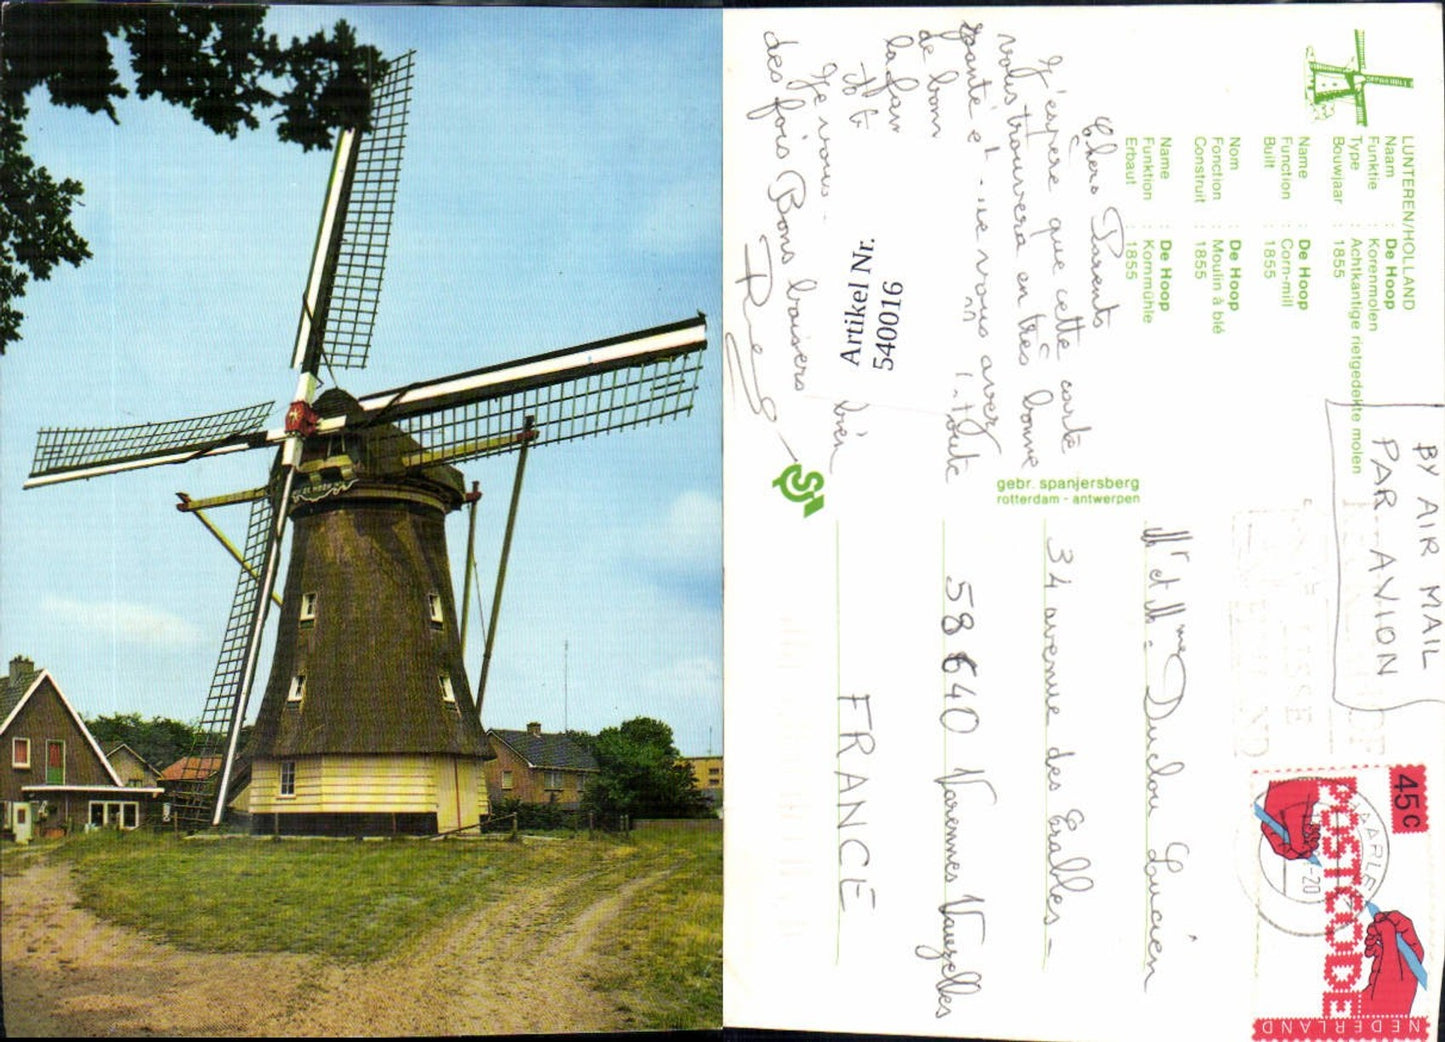 DE HOOP
LUNTEREN/HOLLAND
Naam : De Hoop
Funktie : Korenmolen
Type : Achtkantige rietgedekte molen
Bouwjaar : 1855
Name : De Hoop
Function : Corn-mill
Built : 1855
Nom : De Hoop
Fonction : Moulin à blé
Construit : 1855
Name : De Hoop
Funktion : Kornmühle
Erbaut : 1855
Chers Parents
J'espère que cette carte
vous trouvera en très bonne
santé et vous avez
toute
de bom
la fam
Je vous bien
des fois Bons baisers
Artikel Nr.
540016
gebr. spanjersberg
rotterdam - antwerpen
BY AIR MAIL
PAR AVION
45c
POSTCODE
NEDERLAND
Mr et Mme Duclou Lucien
34 avenue des Erables -
58640 Varennes Vauzelles
FRANCE